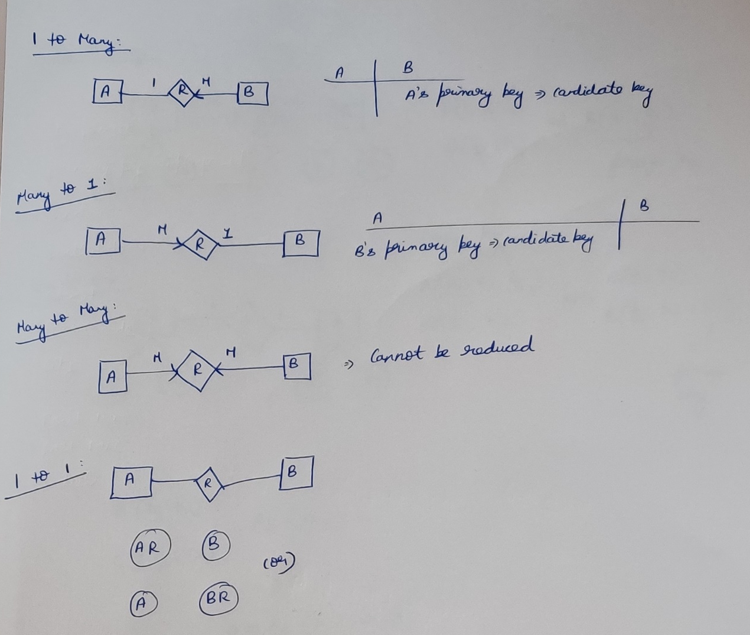 1 to Many:
A 1 R M B
A B
A's primary key => candidate key
Many to 1:
A M R 1 B
A B
B's primary key => candidate key
Many to Many:
A M R M B => Cannot be reduced
1 to 1:
A R B
AR B
(or)
A BR